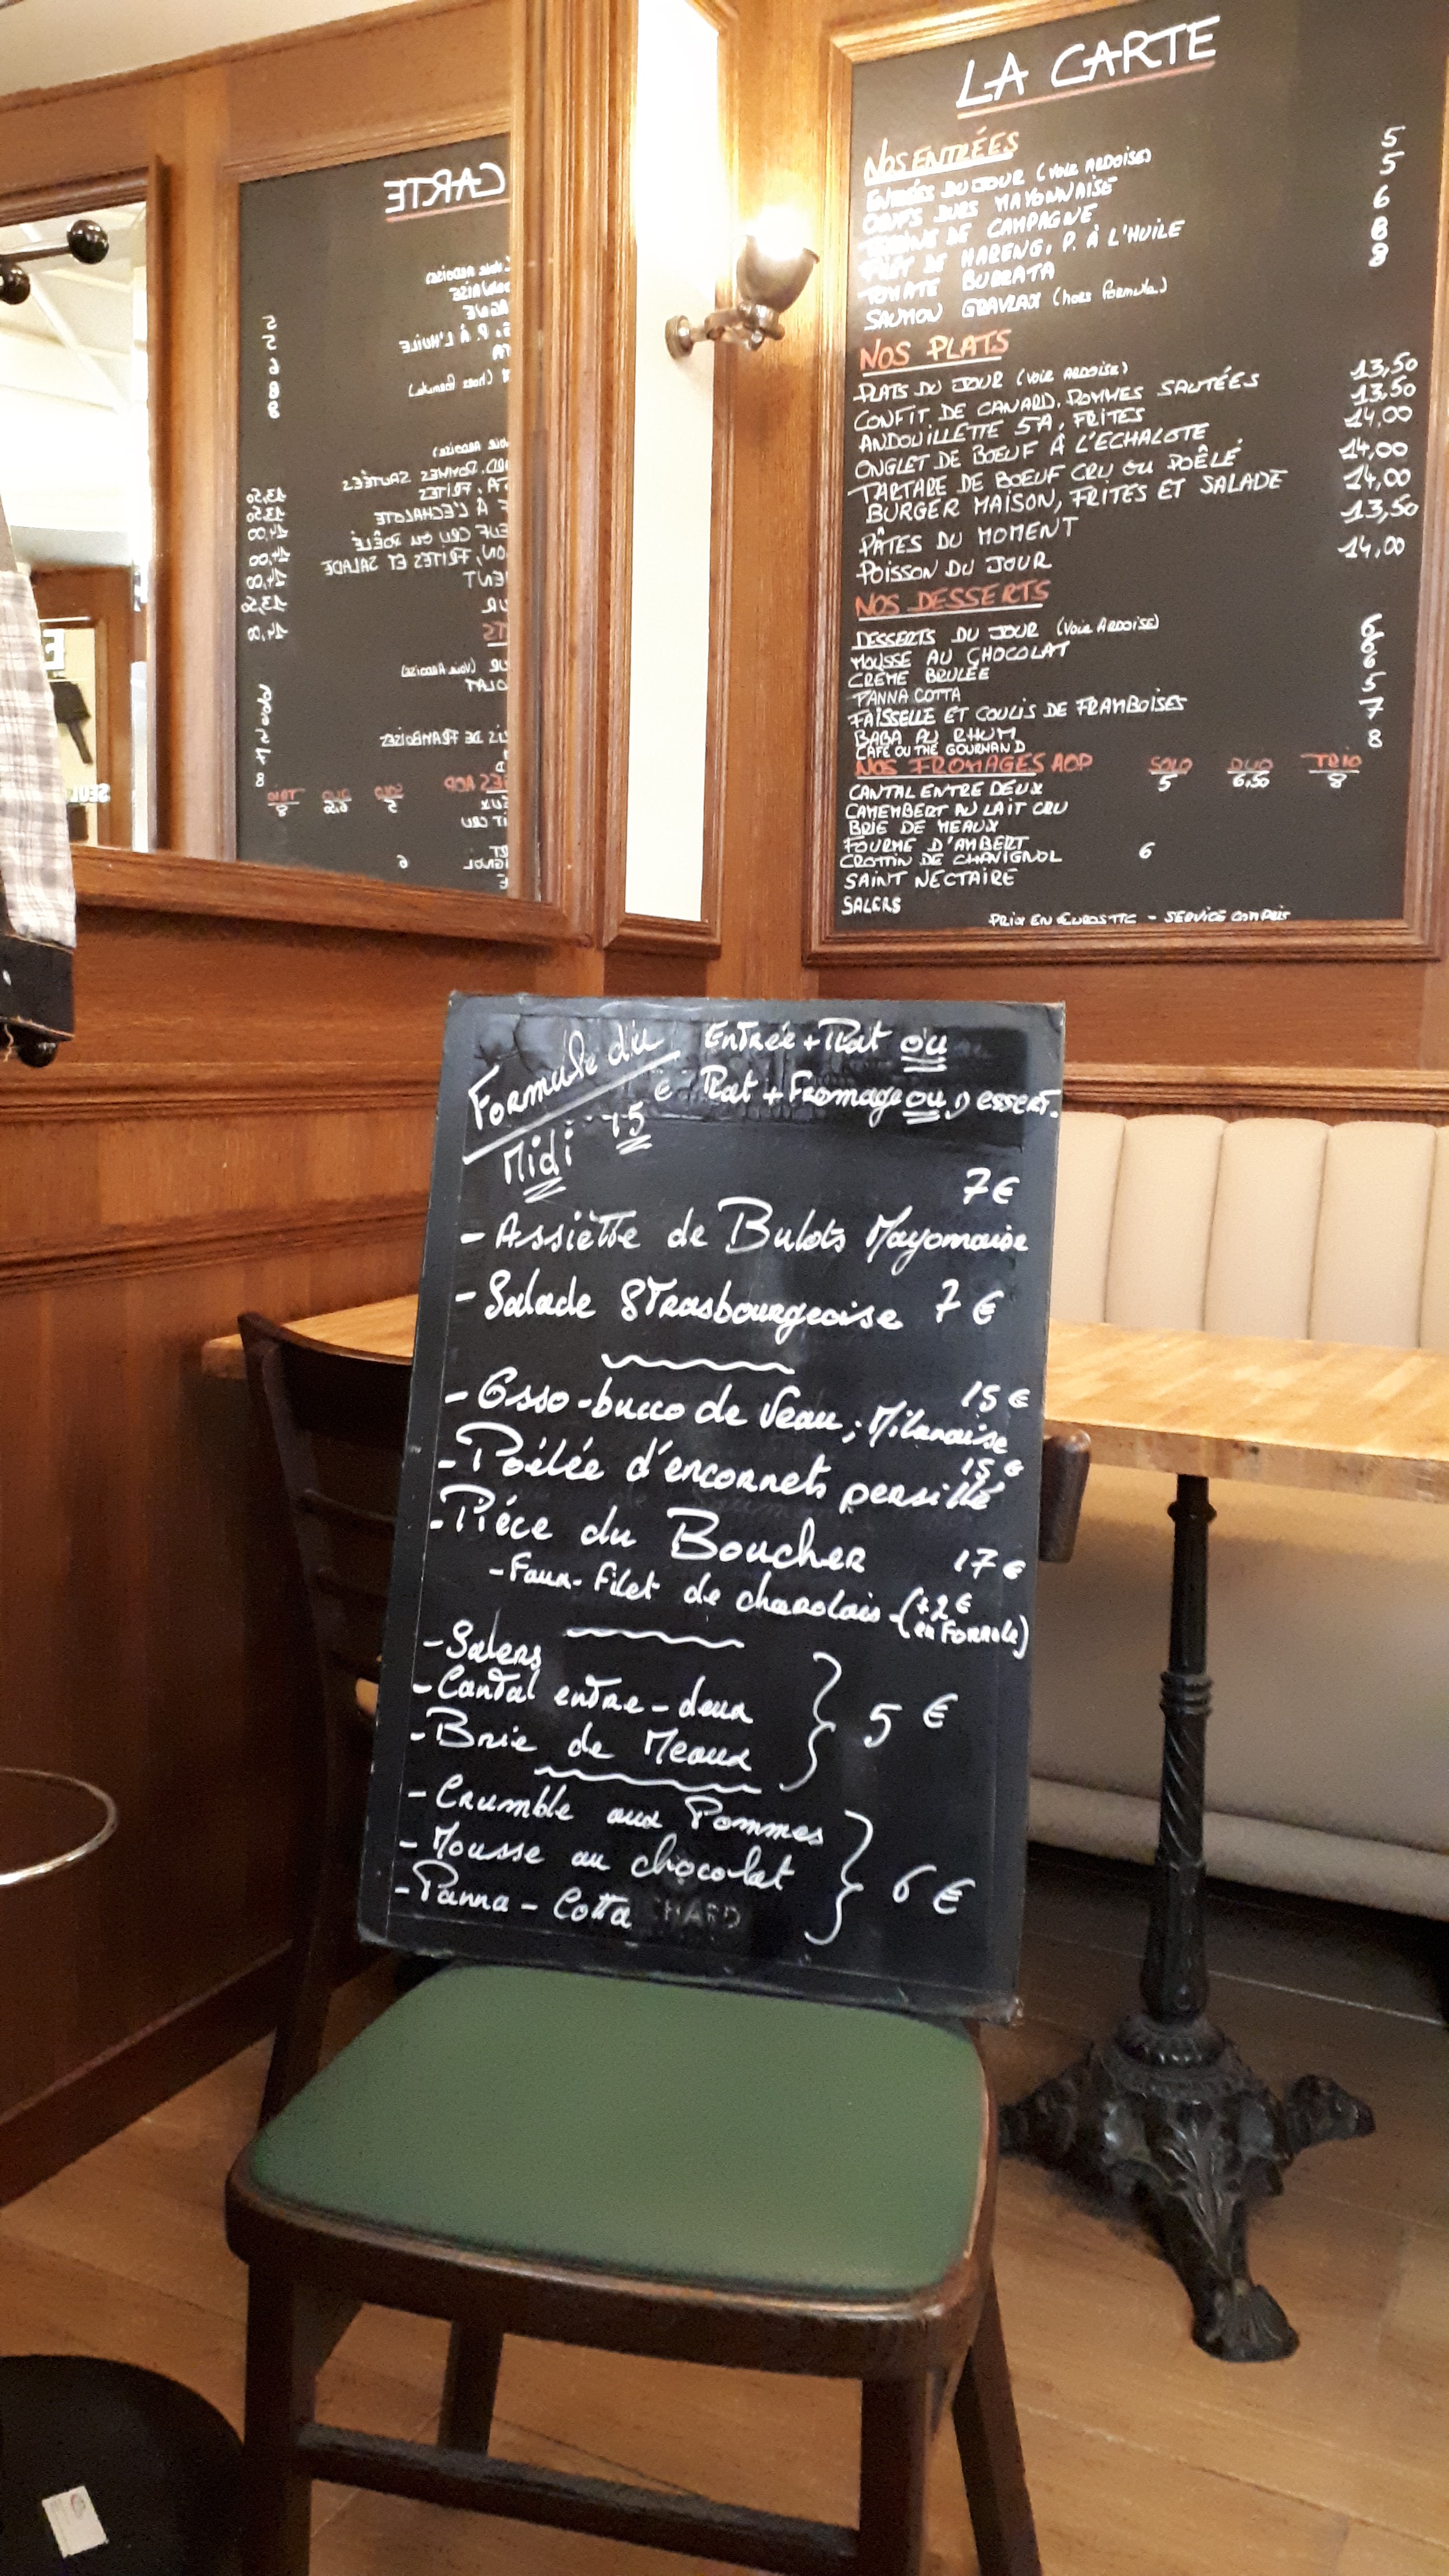 LA CARTE
NOS ENTRÉES
ENTRÉES DU JOUR (VOIR ARDOISE) 5
OEUFS DURS MAYONNAISE 5
TERRINE DE CAMPAGNE 6
FILET DE HARENG, P. À L'HUILE 8
TOMATE BURRATA 8
SAUMON GRAVLAX (hors formule)
NOS PLATS
PLATS DU JOUR (VOIR ARDOISE)
CONFIT DE CANARD, POMMES SAUTÉES 13,50
ANDOUILLETTE 5A, FRITES 13,50
ONGLET DE BOEUF À L'ECHALOTE 14,00
TARTARE DE BOEUF CRU OU POÊLÉ 14,00
BURGER MAISON, FRITES ET SALADE 14,00
PÂTES DU MOMENT 13,50
POISSON DU JOUR 14,00
NOS DESSERTS
DESSERTS DU JOUR (VOIR ARDOISE) 6
MOUSSE AU CHOCOLAT 6
CRÈME BRULÉE 6
PANNA COTTA 5
FAISSELLE ET COULIS DE FRAMBOISES
BABA AU RHUM 7
CAFÉ OU THÉ GOURMAND 8
NOS FROMAGES AOP SOLO DUO TRIO
5 6,50 8
CANTAL ENTRE DEUX
CAMEMBERT AU LAIT CRU
BRIE DE MEAUX
FOURME D'AMBERT
CROTTIN DE CHAVIGNOL 6
SAINT NECTAIRE
SALERS
PRIX EN EUROS TTC - SERVICE COMPRIS
Formule du Midi 15 €
Entrée + Plat ou
Plat + Fromage ou Dessert.
7 €
- Assiette de Bulots Mayonnaise
- Salade Strasbourgeoise 7 €
- Osso-bucco de Veau, Milanaise 15 €
- Poêlée d'encornets persillé 15 €
- Piéce du Boucher 17 €
- Faux-Filet de charolais - (+2 € en Formule)
- Salers
- Cantal entre-deux 5 €
- Brie de Meaux
- Crumble aux Pommes
- Mousse au chocolat 6 €
- Panna-Cotta